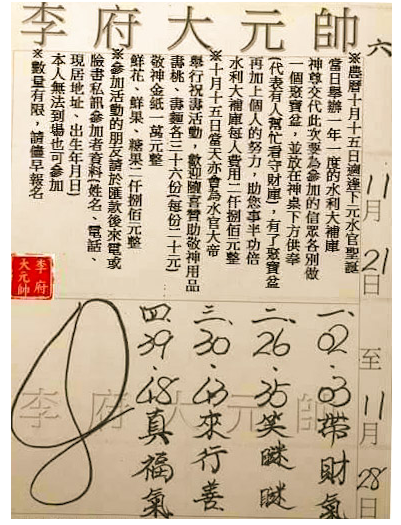 李府大元帥
六
11月21日至11月28日
※農曆十月十五日適逢下元水官聖誕
當日舉辦一年一度的水利大補庫
神尊交代此次要為參加的信眾各別做
一個聚寶盆，並放在神桌下方供奉
(代表有人幫忙看守財庫)，有了聚寶盆
再加上個人的努力，助您事半功倍
水利大補庫每人費用二仟捌佰元整
※十月十五日當天亦會為水官大帝
舉行祝壽活動，歡迎隨喜贊助敬神用品
壽桃、壽麵各三十六份(每份二十元)
敬神金紙一萬元整
鮮花、鮮果、糖果二仟捌佰元整
※參加活動的朋友請於匯款後來電或
臉書私訊參加者資料(姓名、電話、
現居地址、出生年月日)
本人無法到場也可參加
※數量有限，請儘早報名
李府大元帥
李府大元帥
一.02.03帶財氣
二.26.35笑瞇瞇
三.30.43來行善
四.39.48真福氣